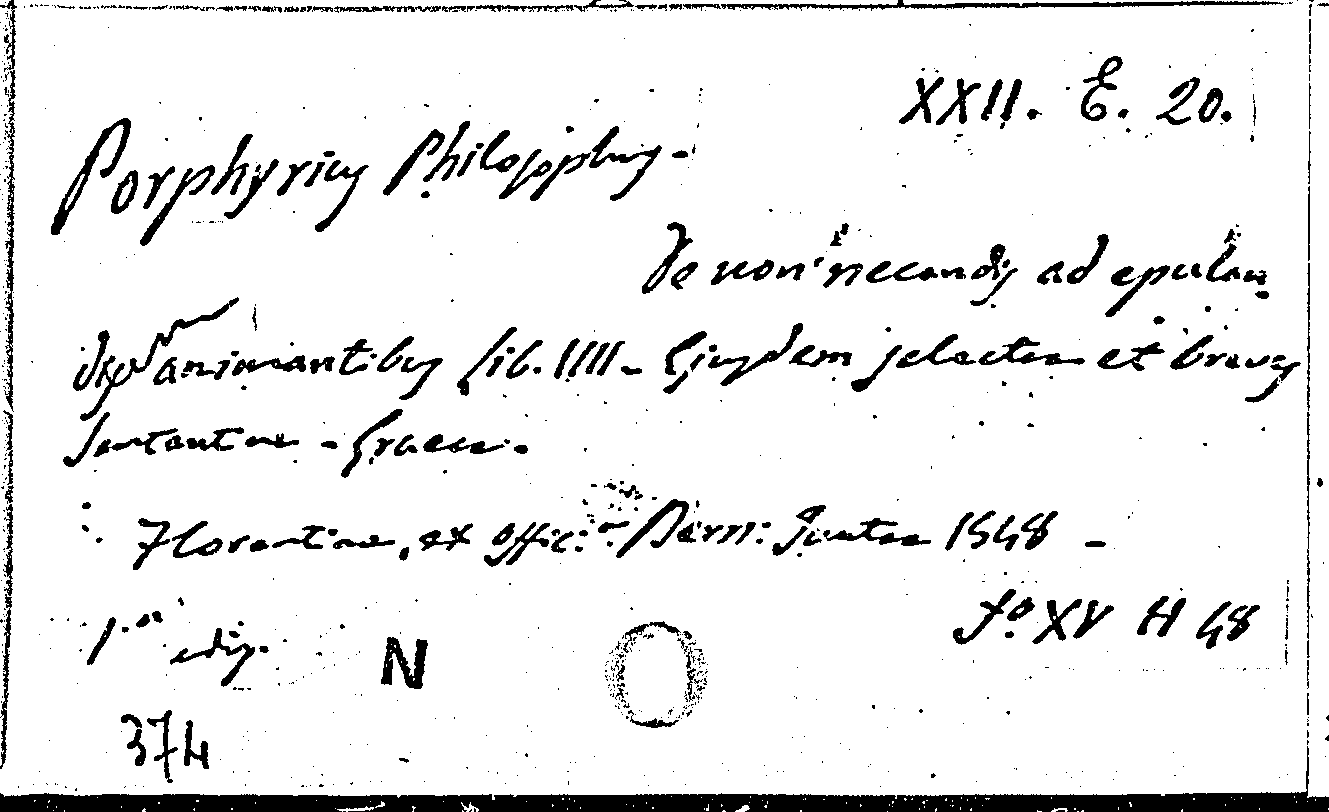 XXII. E. 20.
Porphyrius Philosophus -
De non necandis ad epulan-
dum animantibus Lib. IIII - Ejusdem selectae et breves
Sententiae - Graece.
Florentiae, ex offic: Bern: Juntae 1548 -
fº. XV H 48
1.a ediz.
N
374